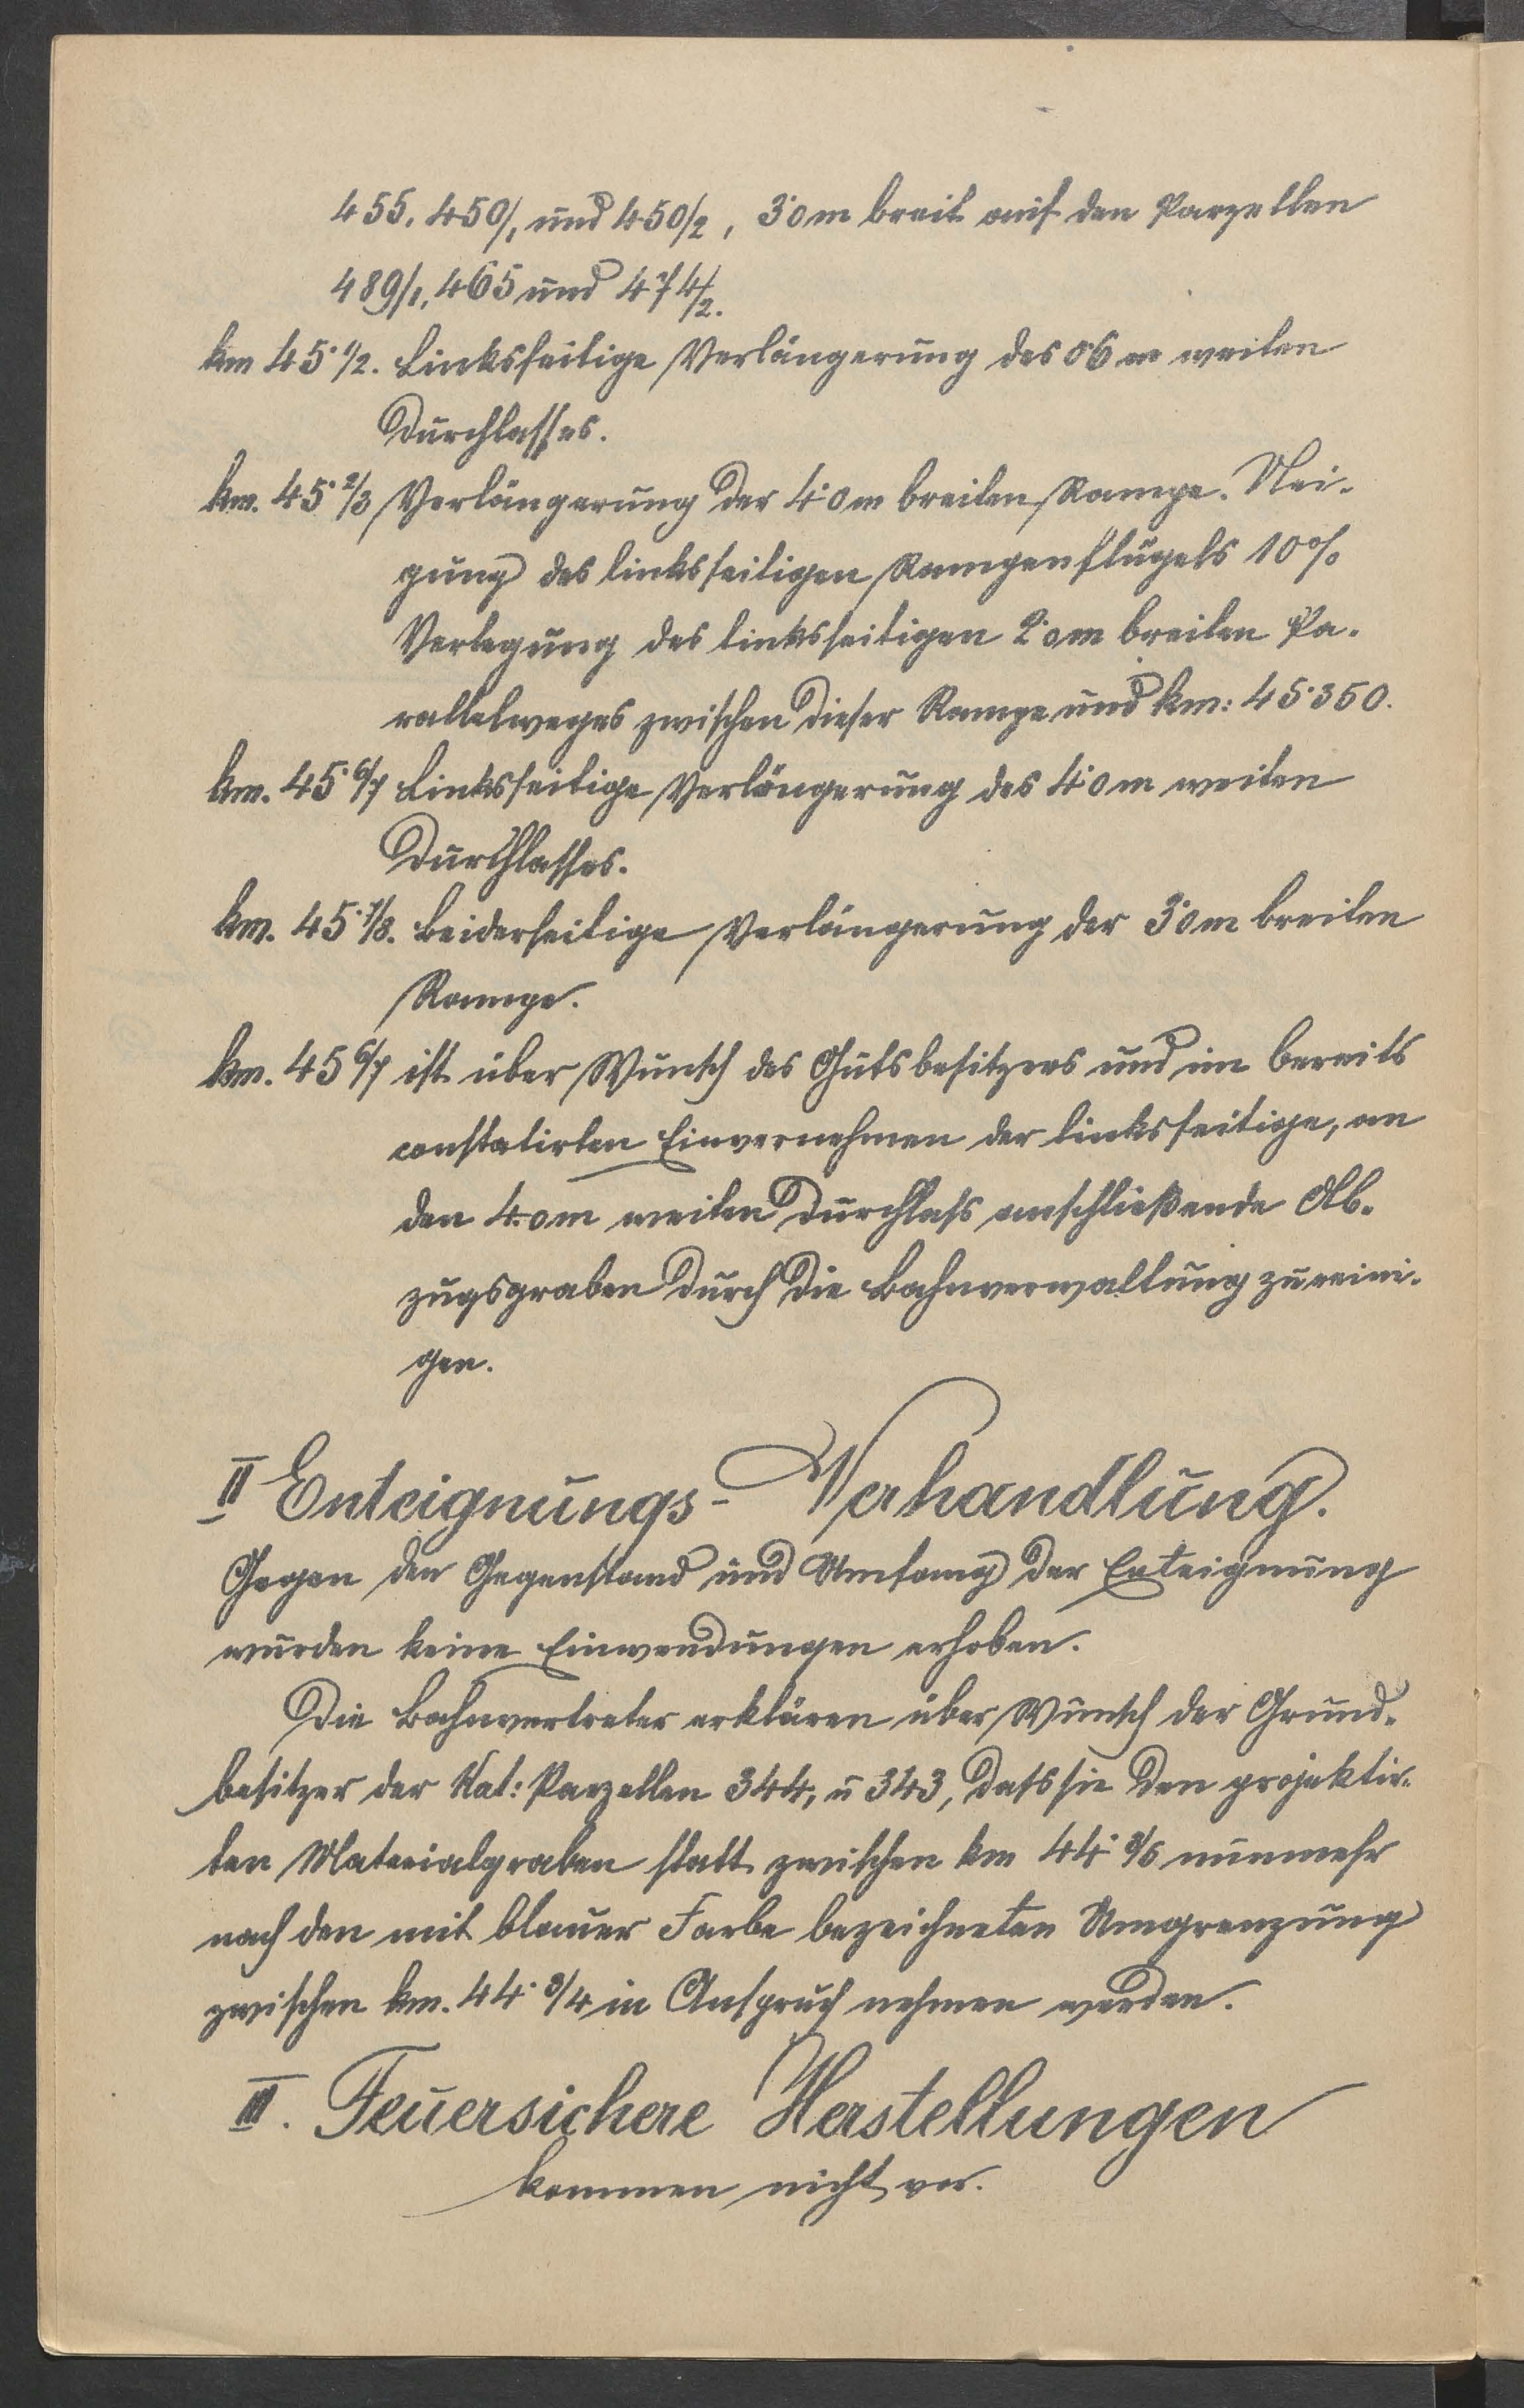 455, 450/1 und 450/2, 3·0 m breit auf den Parzellen
489/1, 465 und 474/2.
km 45·1/2. Linksseitige Verlängerung des 0·6 m weiten
Durchlasses.
km. 45·2/3 Verlängerung der 4·0 m breiten Rampe. Nei-
gung des linksseitigen Rampenflügels 10%
Verlegung des linksseitigen 2·0 m breiten Pa-
rallelweges zwischen dieser Rampe und km: 45·350.
km. 45·6/7 Linksseitige Verlängerung des 4·0 m weiten
Durchlasses.
km. 45·7/8. Beiderseitige Verlängerung der 3·0 m breiten
Rampe.
km. 45 6/7 ist über Wunsch des Gutsbesitzers und im bereits
constatirten Einvernehmen der linksseitige, an
den 4.0 m weiten Durchlass anschließende Ab-
zugsgraben durch die Bahnverwaltung zu reini-
gen.
II Enteignungs-Verhandlung.
Gegen den Gegenstand und Umfang der Enteignung
wurden keine Einwendungen erhoben.
Die Bahnvertreter erklären über Wunsch der Grund-
besitzer der Kat: Parzellen 344, u 343, dass sie den projektir-
ten Materialgraben statt zwischen km 44· nunmehr
nach den mit blauer Farbe bezeichneten Umgrenzung
zwischen km. 44·3/4 in Anspruch nehmen werden.
III. Feuersichere Herstellungen
kommen nicht vor.